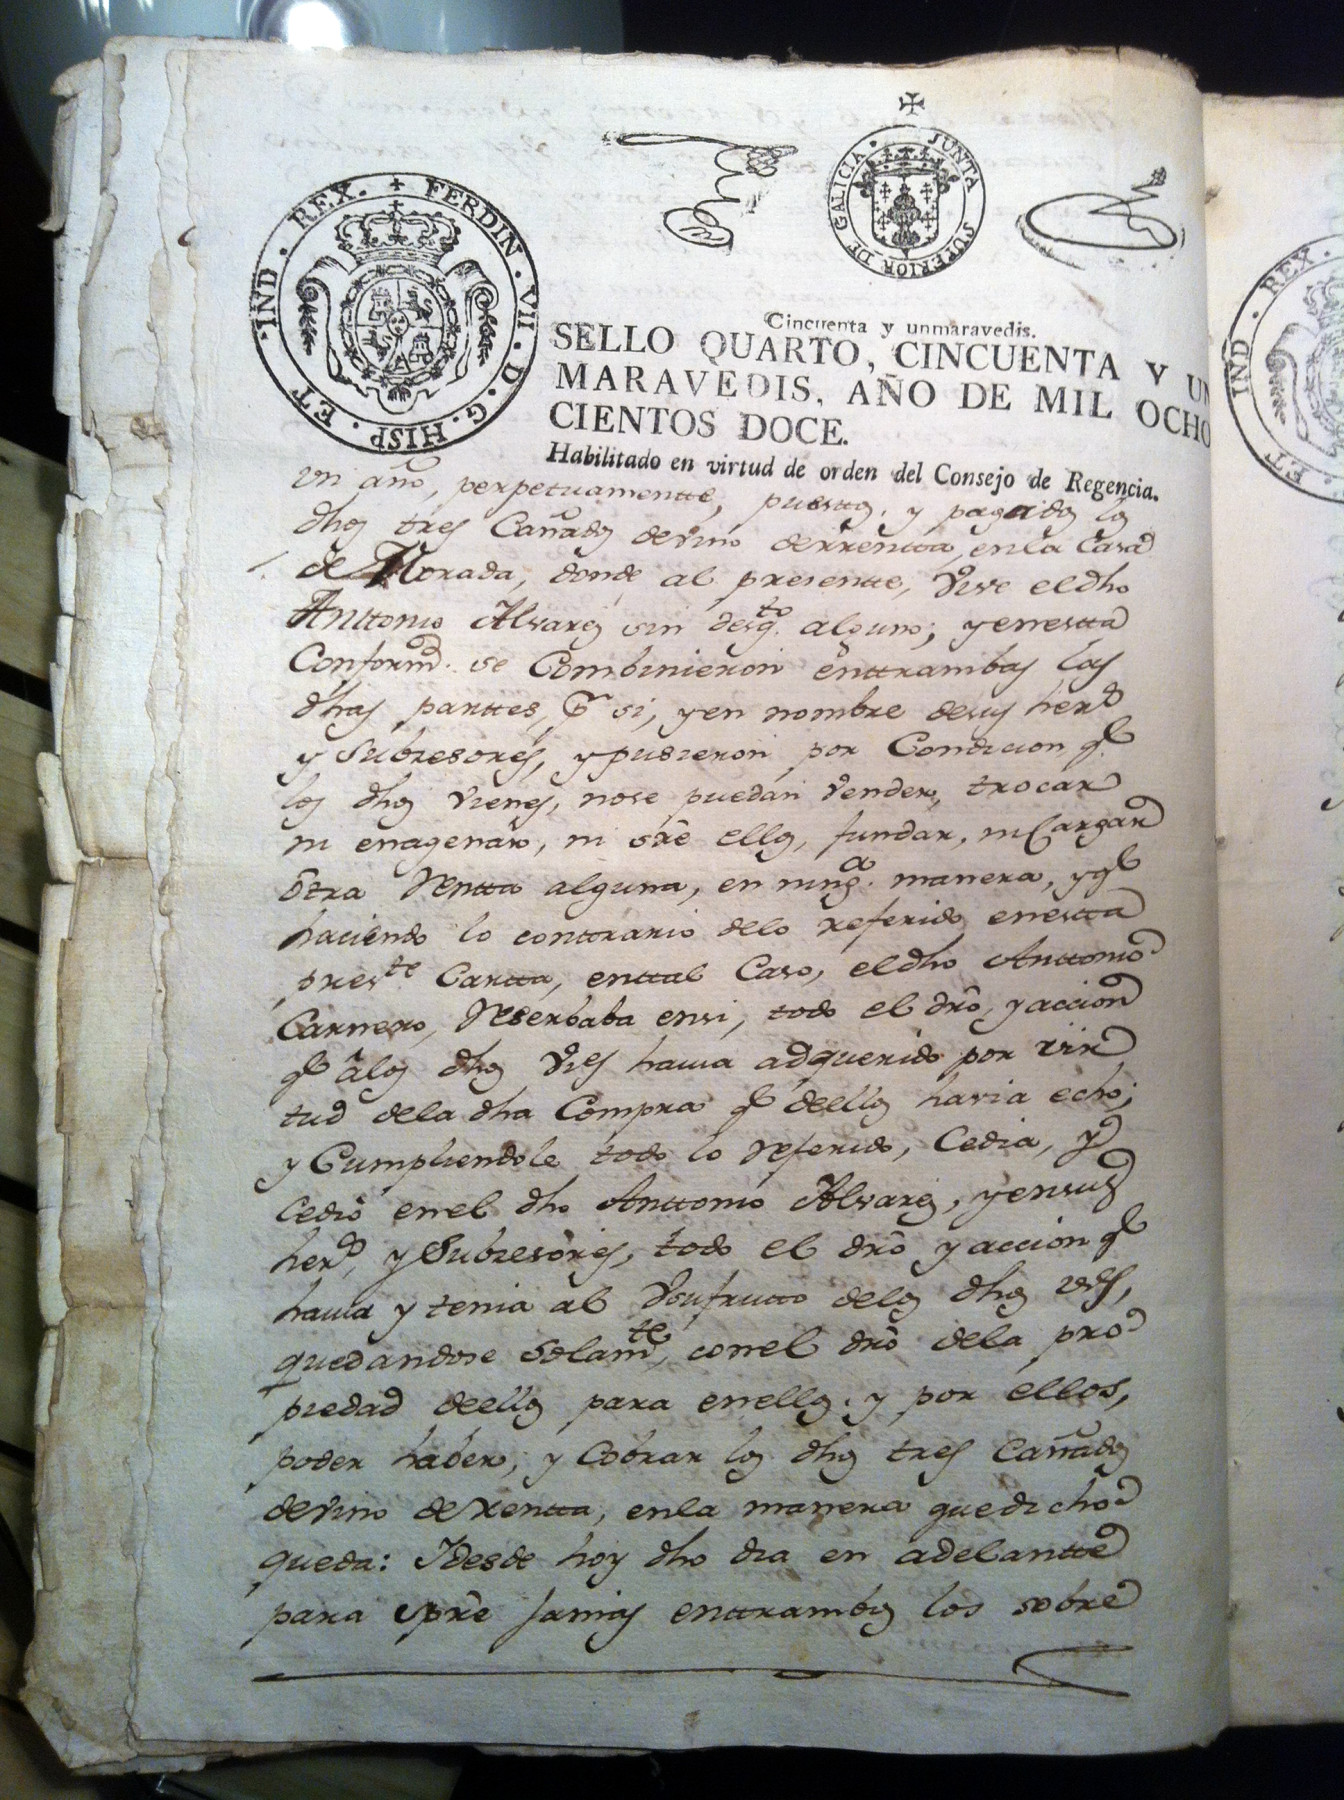 FERDIN · VII · D · G · HISP · ET · IND · REX ·
JUNTA SUPERIOR DE GALICIA ·
Cincuenta y unmaravedis.
SELLO QUARTO, CINCUENTA Y UN
MARAVEDIS, AÑO DE MIL OCHO
CIENTOS DOCE.
Habilitado en virtud de orden del Consejo de Regencia.
un año, perpetuamentte, puestos, y pagados los
dhos tres Cañados devino derrentta, enla Casa
de Morada, donde al presentte, vive el dho
Anttonio Alvarez sin desqto. alguno; y enestta
Conformd. se Combinieron enttrambas las
dhas parttes, pr si, y en nombre desus herds
y Subzesores, y pusieron por Condicion qe
los dhos vienes, nose puedan vender, trocar
ni enagenar, ni sre ellos, fundar, ni Cargar
otra rentta alguna, en ninga. manera, yqe
haciendo lo conttrario delo referido enestta
preste Cartta, enttal Caso, el dho Anttonio
Carnero, reserbaba ensi, todo el dro, y accion
qe âlos dhos vies havia adquerido por vir
tud dela dha Compra qe deellos havia echo;
y Cumpliendole todo lo referido, Cedia, y
Cedió enel dho Anttonio Alvarez, y ensus
herds, y Subzesores, todo el dro y accion qe
havia y tenia al Vsufructo delos dhos vies,
quedandose Solamte, conel dro dela pro
piedad deellos para enellos. y por ellos,
poder haber, y Cobrar los dhos tres Cañados
devino derentta, enla manera quedicho
queda: Idesde hoy dho dia en adelantte
para spre Jamas enttrambos los sobre
IND · REX ·
ET